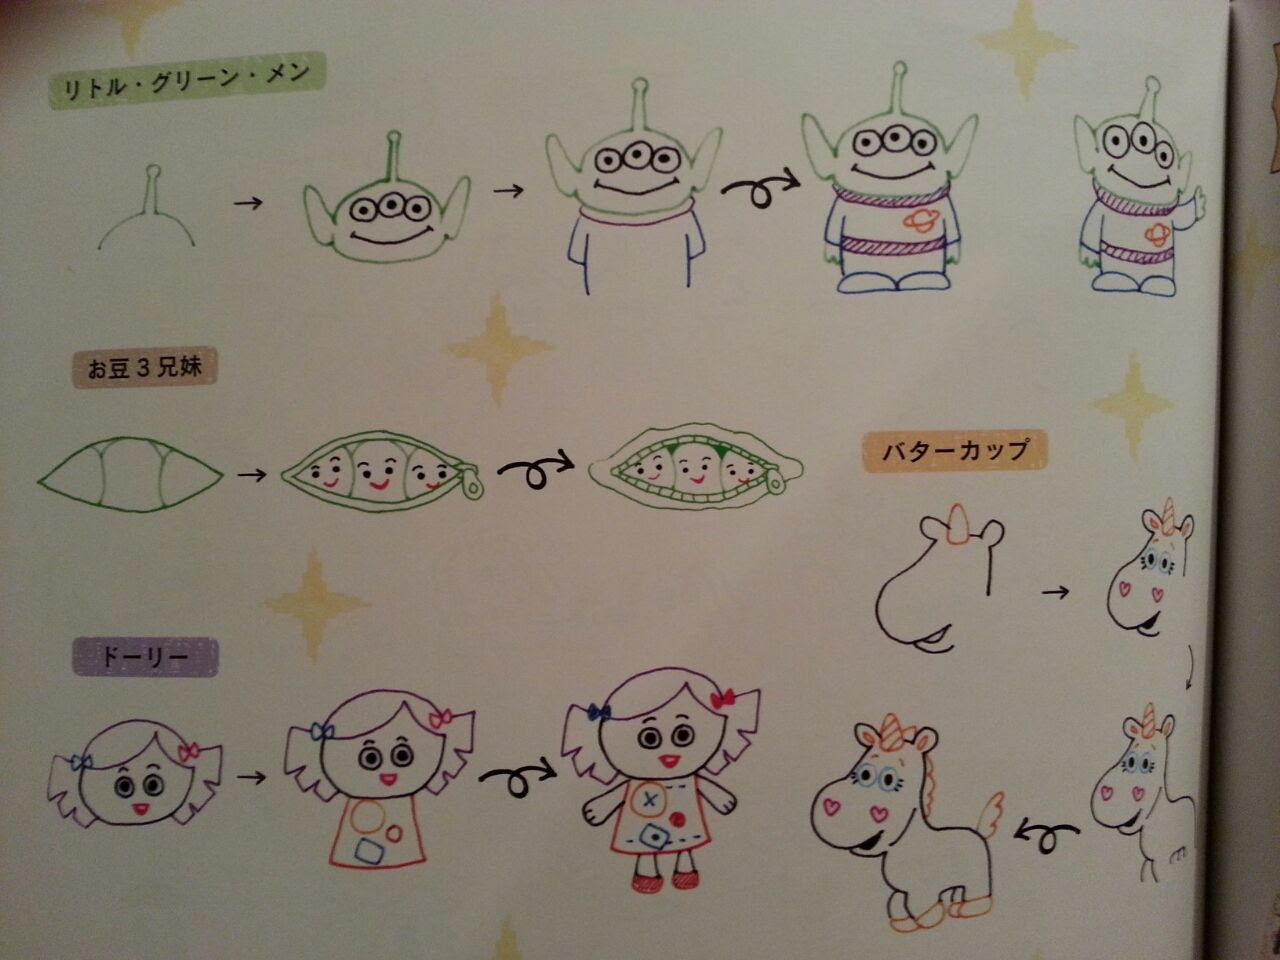 リトル・グリーン・メン
お豆3兄妹
バターカップ
ドーリー